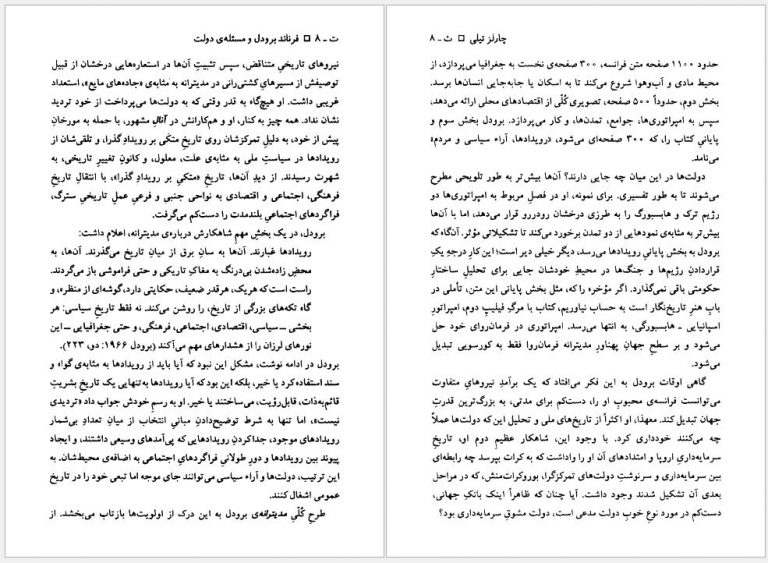 ت ـ ۸ □ فرناند برودل و مسئله‌ی دولت
نیروهای تاریخیِ متناقض، سپس تثبیتِ آن‌ها در استعاره‌هایی درخشان از قبیل
توصیفش از مسیرهای کشتی‌رانی در مدیترانه به مثابه‌ی «جاده‌های مایع»، استعداد
غریبی داشت. او هیچ‌گاه به قدر وقتی که به دولت‌ها می‌پرداخت از خود تردید
نشان نداد. همه چیز به کنار، او و هم‌کارانش در آنالِ مشهور، با حمله به مورخانِ
پیش از خود، به دلیلِ تمرکزشان روی تاریخِ متکی بر رویدادِ گذرا، و تلقی‌شان از
رویدادها در سیاستِ ملی به مثابه‌ی علت، معلول، و کانونِ تغییرِ تاریخی، به
شهرت رسیدند. از دیدِ آن‌ها، تاریخِ «متکی بر رویدادِ گذرا»، با انتقالِ تاریخِ
فرهنگی، اجتماعی و اقتصادی به نواحیِ جنبی و فرعیِ عملِ تاریخیِ سترگ،
فراگردهای اجتماعیِ بلندمدت را دست‌کم می‌گرفت.
برودل، در یک بخشِ مهمِ شاهکارش درباره‌ی مدیترانه، اعلام داشت:
رویدادها غبارند. آن‌ها به سانِ برق از میانِ تاریخ می‌گذرند. آن‌ها، به
محضِ زاده‌شدن بی‌درنگ به مغاکِ تاریکی و حتی فراموشی باز می‌گردند.
راست است که هر یک، هر قدر ضعیف، حکایتی دارد، گوشه‌ای از منظره، و
گاه تکه‌های بزرگی از تاریخ، را روشن می‌کند. نه فقط تاریخِ سیاسی: هر
بخشی ــ سیاسی، اقتصادی، اجتماعی، فرهنگی، و حتی جغرافیایی ــ این
نورهای لرزان را از هشدارهای مهم می‌آکند (برودل ۱۹۶۶: دو، ۲۲۳).
برودل در ادامه نوشت، مشکل این نبود که آیا باید از رویدادها به مثابه‌ی گواه و
سند استفاده کرد یا خیر، بلکه این بود که آیا رویدادها به‌تنهایی یک تاریخِ بشریتِ
قائم‌به‌ذات، قابل‌رؤیت، می‌ساختند یا خیر. او به رسمِ خودش جواب داد «تردیدی
نیست»، اما تنها به شرطِ توضیح‌دادنِ مبانیِ انتخاب از میانِ تعدادِ بی‌شمار
رویدادهای موجود، جداکردنِ رویدادهایی که پی‌آمدهای وسیعی داشتند، و ایجاد
پیوند بین رویدادها و دورِ طولانیِ فراگردهای اجتماعی به اضافه‌ی محیط‌شان. به
این ترتیب، دولت‌ها و آراء سیاسی می‌توانند جای موجه اما تبعی خود را در تاریخ
عمومی اشغال کنند.
طرحِ کُلّیِ مدیترانه‌ی برودل به این درک از اولویت‌ها بازتاب می‌بخشد. از
چارلز تیلی □ ث ـ ۸
حدود ۱۱۰۰ صفحه متن فرانسه، ۳۰۰ صفحه‌ی نخست به جغرافیا می‌پردازد، از
محیط مادی و آب‌وهوا شروع می‌کند تا به اسکان یا جابه‌جایی انسان‌ها برسد.
بخش دوم، حدوداً ۵۰۰ صفحه، تصویری کُلّی از اقتصادهای محلی ارائه می‌دهد،
سپس به امپراتوری‌ها، جوامع، تمدن‌ها، و کار می‌پردازد. برودل بخش سوم و
پایانیِ کتاب را، که ۳۰۰ صفحه‌ای می‌شود، «رویدادها، آراء سیاسی و مردم»
می‌نامد.
دولت‌ها در این میان چه جایی دارند؟ آن‌ها بیش‌تر به طور تلویحی مطرح
می‌شوند تا به طور تفسیری. برای نمونه، او در فصلِ مربوط به امپراتوری‌ها دو
رژیمِ ترک و هابسبورگ را به طرزی درخشان رودررو قرار می‌دهد، اما با آن‌ها
بیش‌تر به مثابه‌ی نمودهایی از دو تمدن برخورد می‌کند تا تشکیلاتی مؤثر. آن‌گاه که
برودل به بخش پایانیِ رویدادها می‌رسد، دیگر خیلی دیر است؛ این کار درجهِ یکِ
قراردادنِ رژیم‌ها و جنگ‌ها در محیطِ خودشان جایی برای تحلیلِ ساختارِ
حکومتی باقی نمی‌گذارد. اگر مؤخره را که، مثل بخش پایانی این متن، تأملی در
بابِ هنرِ تاریخ‌نگار است به حساب نیاوریم، کتاب با مرگِ فیلیپِ دوم، امپراتورِ
اسپانیایی ـ هابسبورگی، به انتها می‌رسد. امپراتوری در فرمان‌روای خود حل
می‌شود و بر سطحِ جهانِ پهناورِ مدیترانه فرمان‌روا فقط به کورسویی تبدیل
می‌شود.
گاهی اوقات برودل به این فکر می‌افتاد که یک برآمدِ نیروهای متفاوت
می‌توانست فرانسه‌ی محبوبِ او را، دست‌کم برای مدتی، به بزرگ‌ترین قدرتِ
جهان تبدیل کند. معهذا، او اکثراً از تاریخ‌های ملی و تحلیلِ این که دولت‌ها عملاً
چه می‌کنند خودداری کرد. با وجود این، شاهکار عظیمِ دومِ او، تاریخِ
سرمایه‌داریِ اروپا و امتدادهای آن او را واداشت که به کرات بپرسد چه رابطه‌ای
بین سرمایه‌داری و سرنوشتِ دولت‌های تمرکزگرا، بوروکرات‌منش، که در مراحلِ
بعدی آن تشکیل شدند وجود داشت. آیا چنان که ظاهراً اینک بانکِ جهانی،
دست‌کم در مورد نوعِ خوبِ دولت مدعی است، دولت مشوقِ سرمایه‌داری بود؟